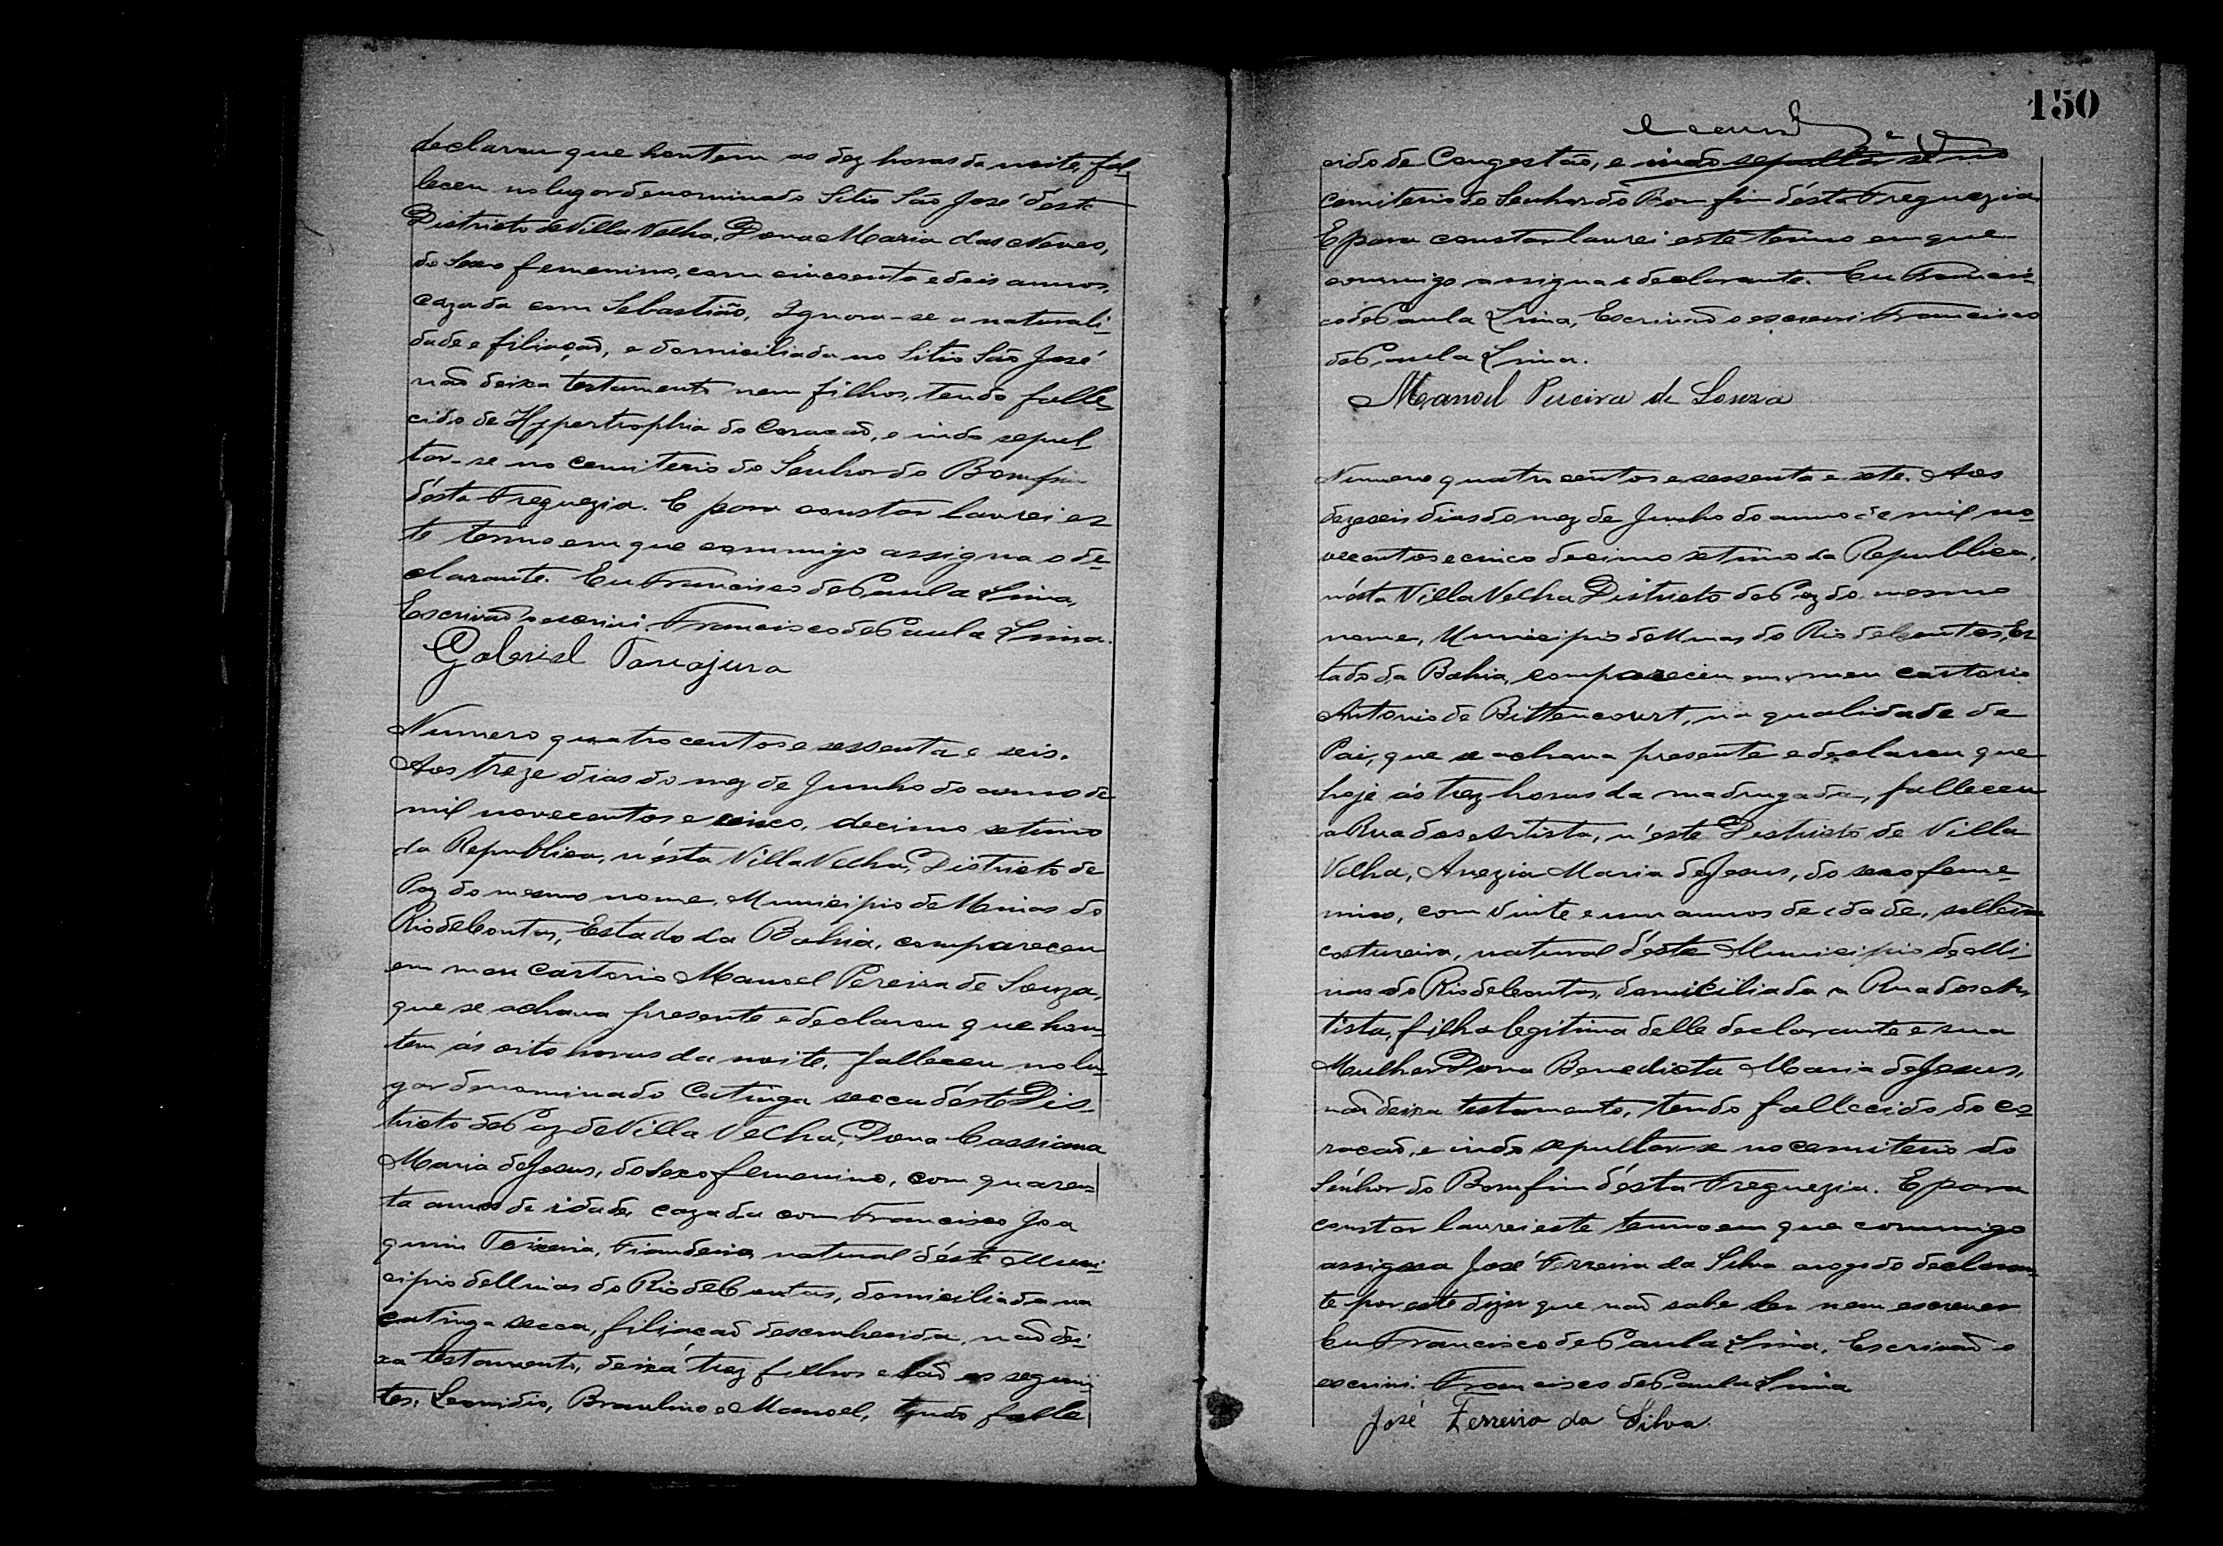 declarou que hontem as dez horas da noite, fal
leceu no lugar denominado Sitio São José d'este
Districto de Villa Velha, Dona Maria das Neves,
do Sexo femenino, com cincoenta e dois annos,
cazada com Sebastião, Ignora-se a naturali-
dade e filiação, e domiciliada no Sitio São José
não deixa testamento nem filhos, tendo falle
cido de Hypertrophia do Coração, e indo sepul
tar-se no cemiterio do Senhor do Bomfim
d'ésta Freguezia. E para constar lavrei es
te termo em que commigo assigna o de-
clarante. Eu Francisco de Paula Lima,
Escrivão o escrevi. Francisco de Paula Lima.
Gabriel Tanajura
Numero quatro centos e sessenta e seis.
Aos treze dias do mez de Junho do anno de
mil novecentos e cinco, decimo setimo
da Republica, n'ésta Villa Velha, Districto de
Paz do mesmo nome, Municipio de Minas do
Rio de Contas, Estado da Bahia, compareceu
em meu Cartorio Manoel Pereira de Souza,
que se achava presente e declarou que hon-
tem ás oito horas da noite, falleceu no lu-
gar denominado Catinga secca d'éste Dis-
tricto de Paz de Villa Velha, Dona Cassiana
Maria de Jesus, do Sexo femenino, com quaren-
ta annos de idade, cazada com Francisco Joa
quim Teixeira, Fiandeira, natural d'éste Muni-
cipio de Minas do Rio de Contas, domiciliada na
Catinga secca, filiação desconhecida, não dei-
xa testamento, deixa trez filhos e são os seguin
tes, Leonidio, Braulino e Manoel, tendo falle
150
cido de Congestão, e indo sepultar-se no
cemiterio do Senhor do Bom fim d'ésta Freguezia
E para constar lavrei este termo em que
commigo assigna o declarante. Eu Francis-
co de Paula Lima, Escrivão o escrevi Francisco
de Paula Lima.
Manoel Pereira de Souza
Numero quatro centos e sessenta e sete. Aos
dezeseis dias do mez de Junho do anno de mil no-
vecentos e cinco decimo setimo da Republica,
n'ésta Villa Velha Districto de Paz do mesmo
nome, Municipio de Minas do Rio de Contas, Es
tado da Bahia, compareceu em meu cartorio
Antonio de Bittencourt, na qualidade de
Pai, que se achava presente e declarou que
hoje ás trez horas da madrugada, falleceu
a Rua dos Artista, n'éste Districto de Villa
Velha, Anezia Maria de Jesus, do sexo feme-
nino, com vinte e um annos de idade, solteira
costureira, natural d'éste Municipio de Mi
nas do Rio de Contas, domiciliada a Rua dos Ar
tista, filha legitima delle declarante e sua
Mulher Dona Benedicta Maria de Jesus,
não deixa testamento, tendo fallecido do co-
ração, e indo sepultar-se no cemiterio do
Senhor do Bomfim d'ésta Freguezia. E para
constar lavrei este termo em que commigo
assigna José Ferreira da Silva arogo do declaran-
te por este dizer que não sabe ler nem escrever
Eu Francisco de Paula Lima, Escrivão o
escrevi. Francisco de Paula Lima
José Ferreira da Silva.